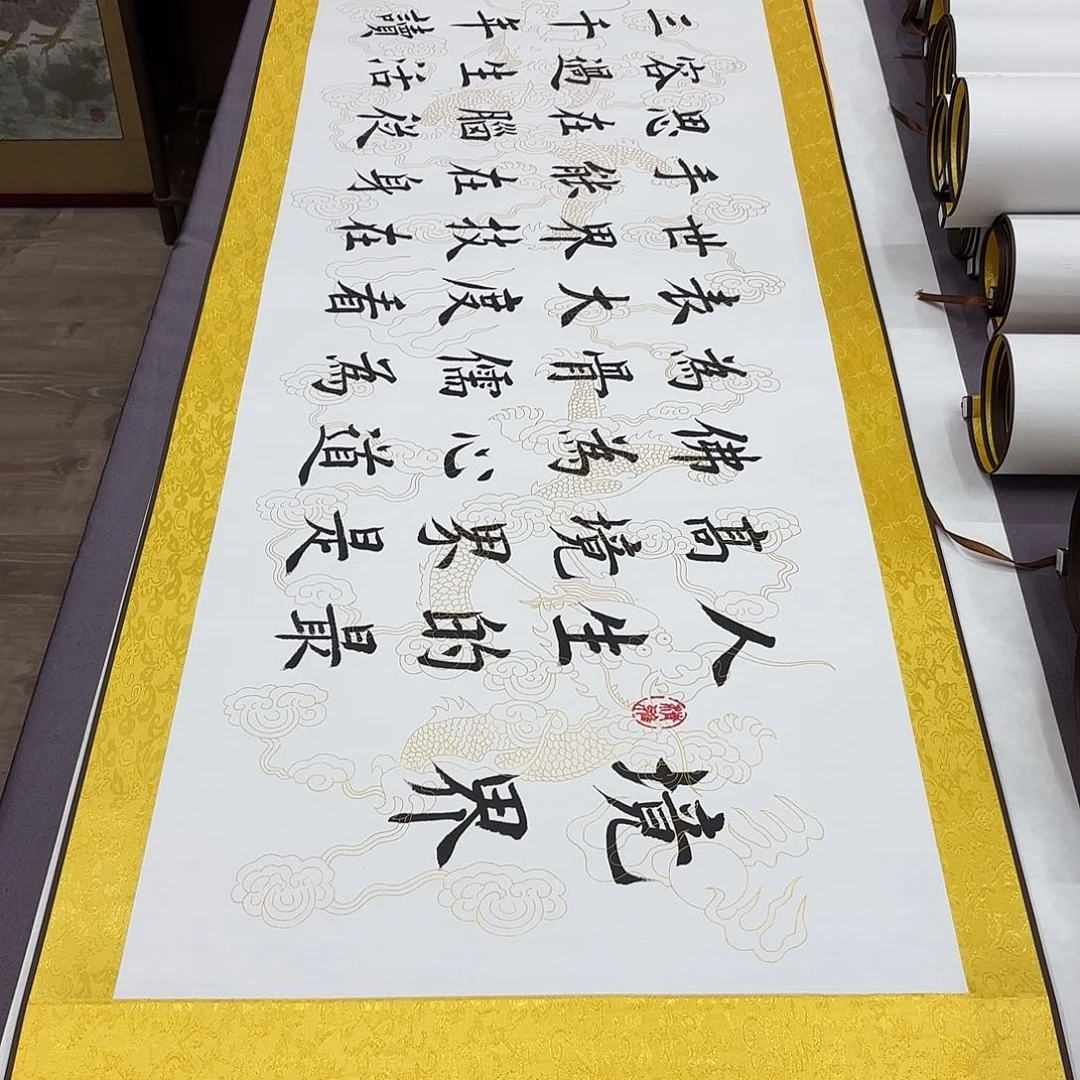 境界
人生的最
高境界是
佛為心道
為骨儒為
表大度看
世界技在
手能在身
思在腦從
容過生活
三千年讀